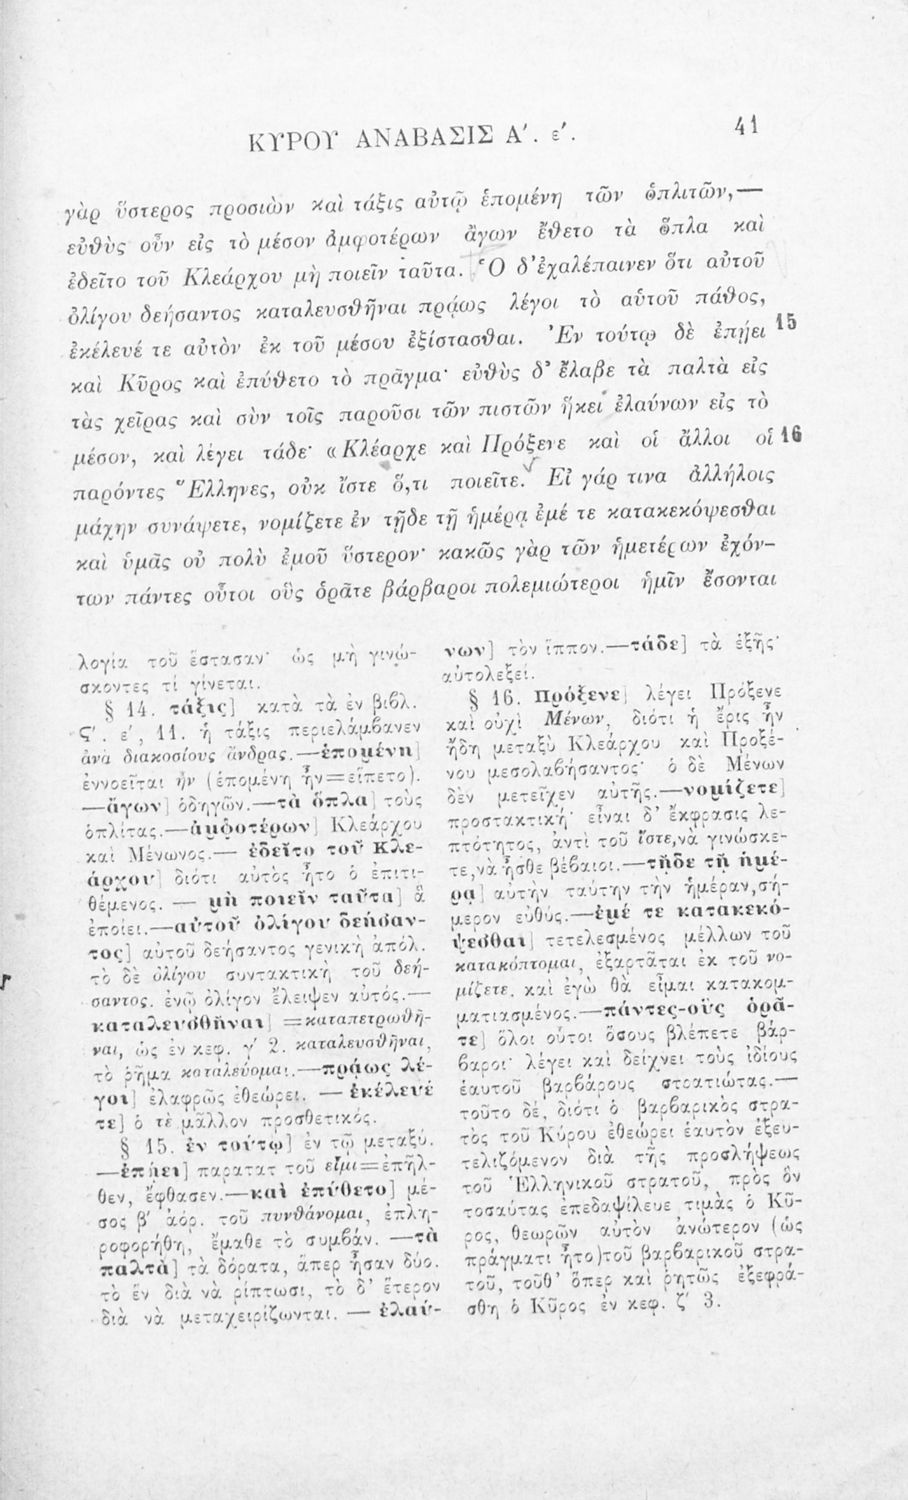 ΚΥΡΟΥ ΑΝΑΒΑΣΙΣ Α΄. ε΄.
41
γὰρ ὕστερος προσιὼν καὶ τάξις αὐτῷ ἑπομένη τῶν ὁπλιτῶν,—
εὐθὺς οὖν εἰς τὸ μέσον ἀμφοτέρων ἄγων ἔθετο τὰ ὅπλα καὶ
ἐδεῖτο τοῦ Κλεάρχου μὴ ποιεῖν ταῦτα. Ὁ δ᾽ἐχαλέπαινεν ὅτι αὐτοῦ
ὀλίγου δεήσαντος καταλευσθῆναι πρᾴως λέγοι τὸ αὑτοῦ πάθος,
ἐκέλευέ τε αὐτὸν ἐκ τοῦ μέσου ἐξίστασθαι. Ἐν τούτῳ δὲ ἐπῄει 15
καὶ Κῦρος καὶ ἐπύθετο τὸ πρᾶγμα· εὐθὺς δ᾽ ἔλαβε τὰ παλτὰ εἰς
τὰς χεῖρας καὶ σὺν τοῖς παροῦσι τῶν πιστῶν ἧκει ἐλαύνων εἰς τὸ
μέσον, καὶ λέγει τάδε· «Κλέαρχε καὶ Πρόξενε καὶ οἱ ἄλλοι οἱ 16
παρόντες Ἕλληνες, οὐκ ἴστε ὅ,τι ποιεῖτε. Εἰ γάρ τινα ἀλλήλοις
μάχην συνάψετε, νομίζετε ἐν τῇδε τῇ ἡμέρᾳ ἐμέ τε κατακεκόψεσθαι
καὶ ὑμᾶς οὐ πολὺ ἐμοῦ ὕστερον· κακῶς γὰρ τῶν ἡμετέρων ἐχόν-
των πάντες οὗτοι οὓς ὁρᾶτε βάρβαροι πολεμιώτεροι ἡμῖν ἔσονται
λογία τοῦ ἕστασαν· ὡς μὴ γινώ-
σκοντες τί γίνεται.
§ 14. τάξις] κατὰ τὰ ἐν βιβλ.
Ϛ΄. ε΄, 11. ἡ τάξις περιελάμβανεν
ἀνὰ διακοσίους ἄνδρας.—ἑπομένη]
ἐννοεῖται ἦν (ἑπομένη ἦν=εἵπετο).
—ἄγων] ὁδηγῶν.—τὰ ὅπλα] τοὺς
ὁπλίτας.—ἀμφοτέρων] Κλεάρχου
καὶ Μένωνος.— ἐδεῖτο τοῦ Κλε-
άρχου] διότι αὐτὸς ἦτο ὁ ἐπιτι-
θέμενος. — μὴ ποιεῖν ταῦτα] ἃ
ἐποίει.—αὐτοῦ ὀλίγου δεήσαν-
τος] αὐτοῦ δεήσαντος γενικὴ ἀπόλ.
τὸ δὲ ὀλίγου συντακτικὴ τοῦ δεή-
σαντος. ἐνῷ ὀλίγον ἔλειψεν αὐτός.—
καταλευσθῆναι] =καταπετρωθῆ-
ναι, ὡς ἐν κεφ. γ΄ 2. καταλευσθῆναι,
τὸ ῥῆμα καταλεύομαι.—πρᾴως λέ-
γοι] ἐλαφρῶς ἐθεώρει. — ἐκέλευέ
τε] ὁ τὲ μᾶλλον προσθετικός.
§ 15. ἐν τούτῳ] ἐν τῷ μεταξύ.
—ἐπῄει] παρατατ τοῦ εἶμι=ἐπῆλ-
θεν, ἔφθασεν.—καὶ ἐπύθετο] μέ-
σος β΄ ἀόρ. τοῦ πυνθάνομαι, ἐπλη-
ροφορήθη, ἔμαθε τὸ συμβάν. —τὰ
παλτὰ] τὰ δόρατα, ἅπερ ἦσαν δύο.
τὸ ἓν διὰ νὰ ρίπτωσι, τὸ δ᾽ ἕτερον
διὰ νὰ μεταχειρίζωνται. — ἐλαύ-
νων] τὸν ἵππον.—τάδε] τὰ ἑξῆς·
αὐτολεξεί.
§ 16. Πρόξενε] λέγει Πρόξενε
καὶ οὐχὶ Μένων, διότι ἡ ἔρις ἦν
ἤδη μεταξὺ Κλεάρχου καὶ Προξέ-
νου μεσολαβήσαντος· ὁ δὲ Μένων
δὲν μετεῖχεν αὐτῆς.—νομίζετε]
προστακτική· εἶναι δ᾽ ἔκφρασις λε-
πτότητος, ἀντὶ τοῦ ἴστε,νὰ γινώσκε-
τε,νὰ ἦσθε βέβαιοι.—τῇδε τῇ ἡμέ-
ρᾳ] αὐτὴν ταύτην τὴν ἡμέραν,σή-
μερον εὐθύς.—ἐμέ τε κατακεκό-
ψεσθαι] τετελεσμένος μέλλων τοῦ
κατακόπτομαι, ἐξαρτᾶται ἐκ τοῦ νο-
μίζετε. καὶ ἐγὼ θὰ εἶμαι κατακομ-
ματιασμένος.—πάντες-οὓς ὁρᾶ-
τε] ὅλοι οὗτοι ὅσους βλέπετε βάρ-
βαροι· λέγει καὶ δείχνει τοὺς ἰδίους
ἑαυτοῦ βαρβάρους στρατιώτας.—
τοῦτο δέ, διότι ὁ βαρβαρικὸς στρα-
τὸς τοῦ Κύρου ἐθεώρει ἑαυτὸν ἐξευ-
τελιζόμενον διὰ τῆς προσλήψεως
τοῦ Ἑλληνικοῦ στρατοῦ, πρὸς ὃν
τοσαύτας ἐπεδαψίλευε τιμὰς ὁ Κῦ-
ρος, θεωρῶν αὐτὸν ἀνώτερον (ὡς
πράγματι ἦτο)τοῦ βαρβαρικοῦ στρα-
τοῦ, τοῦθ᾽ ὅπερ καὶ ῥητῶς ἐξεφρά-
σθη ὁ Κῦρος ἐν κεφ. ζ΄ 3.